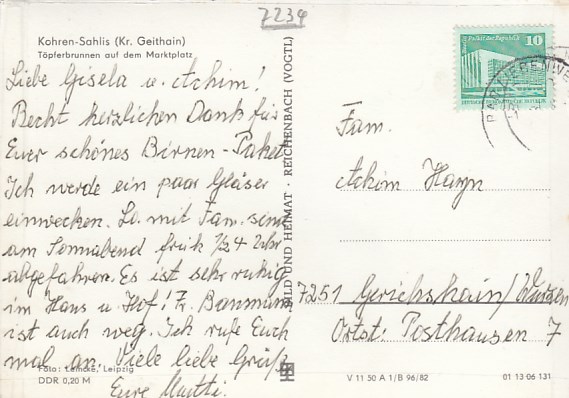 7234
Kohren-Sahlis (Kr. Geithain)
Töpferbrunnen auf dem Marktplatz
Liebe Gisela u. Achim!
Recht herzlichen Dank für
Euer schönes Birnen-Paket.
Ich werde ein paar Gläser
einwecken. Lo. mit Fam. sind
am Sonnabend früh 1/2 4 Uhr
abgefahren. Es ist sehr ruhig
im Haus u. Hof! Fr. Baumann
ist auch weg. Ich rufe Euch
mal an. Viele liebe Grüße
Eure Mutti.
Foto: Lemcke, Leipzig
DDR 0,20 M
BILD UND HEIMAT · REICHENBACH (VOGTL)
10
Fam.
Achim
7251 Gerichshain/Wurzen
Ortst: Posthausen 7
V 11 50 A 1/B 96/82
01 13 06 131